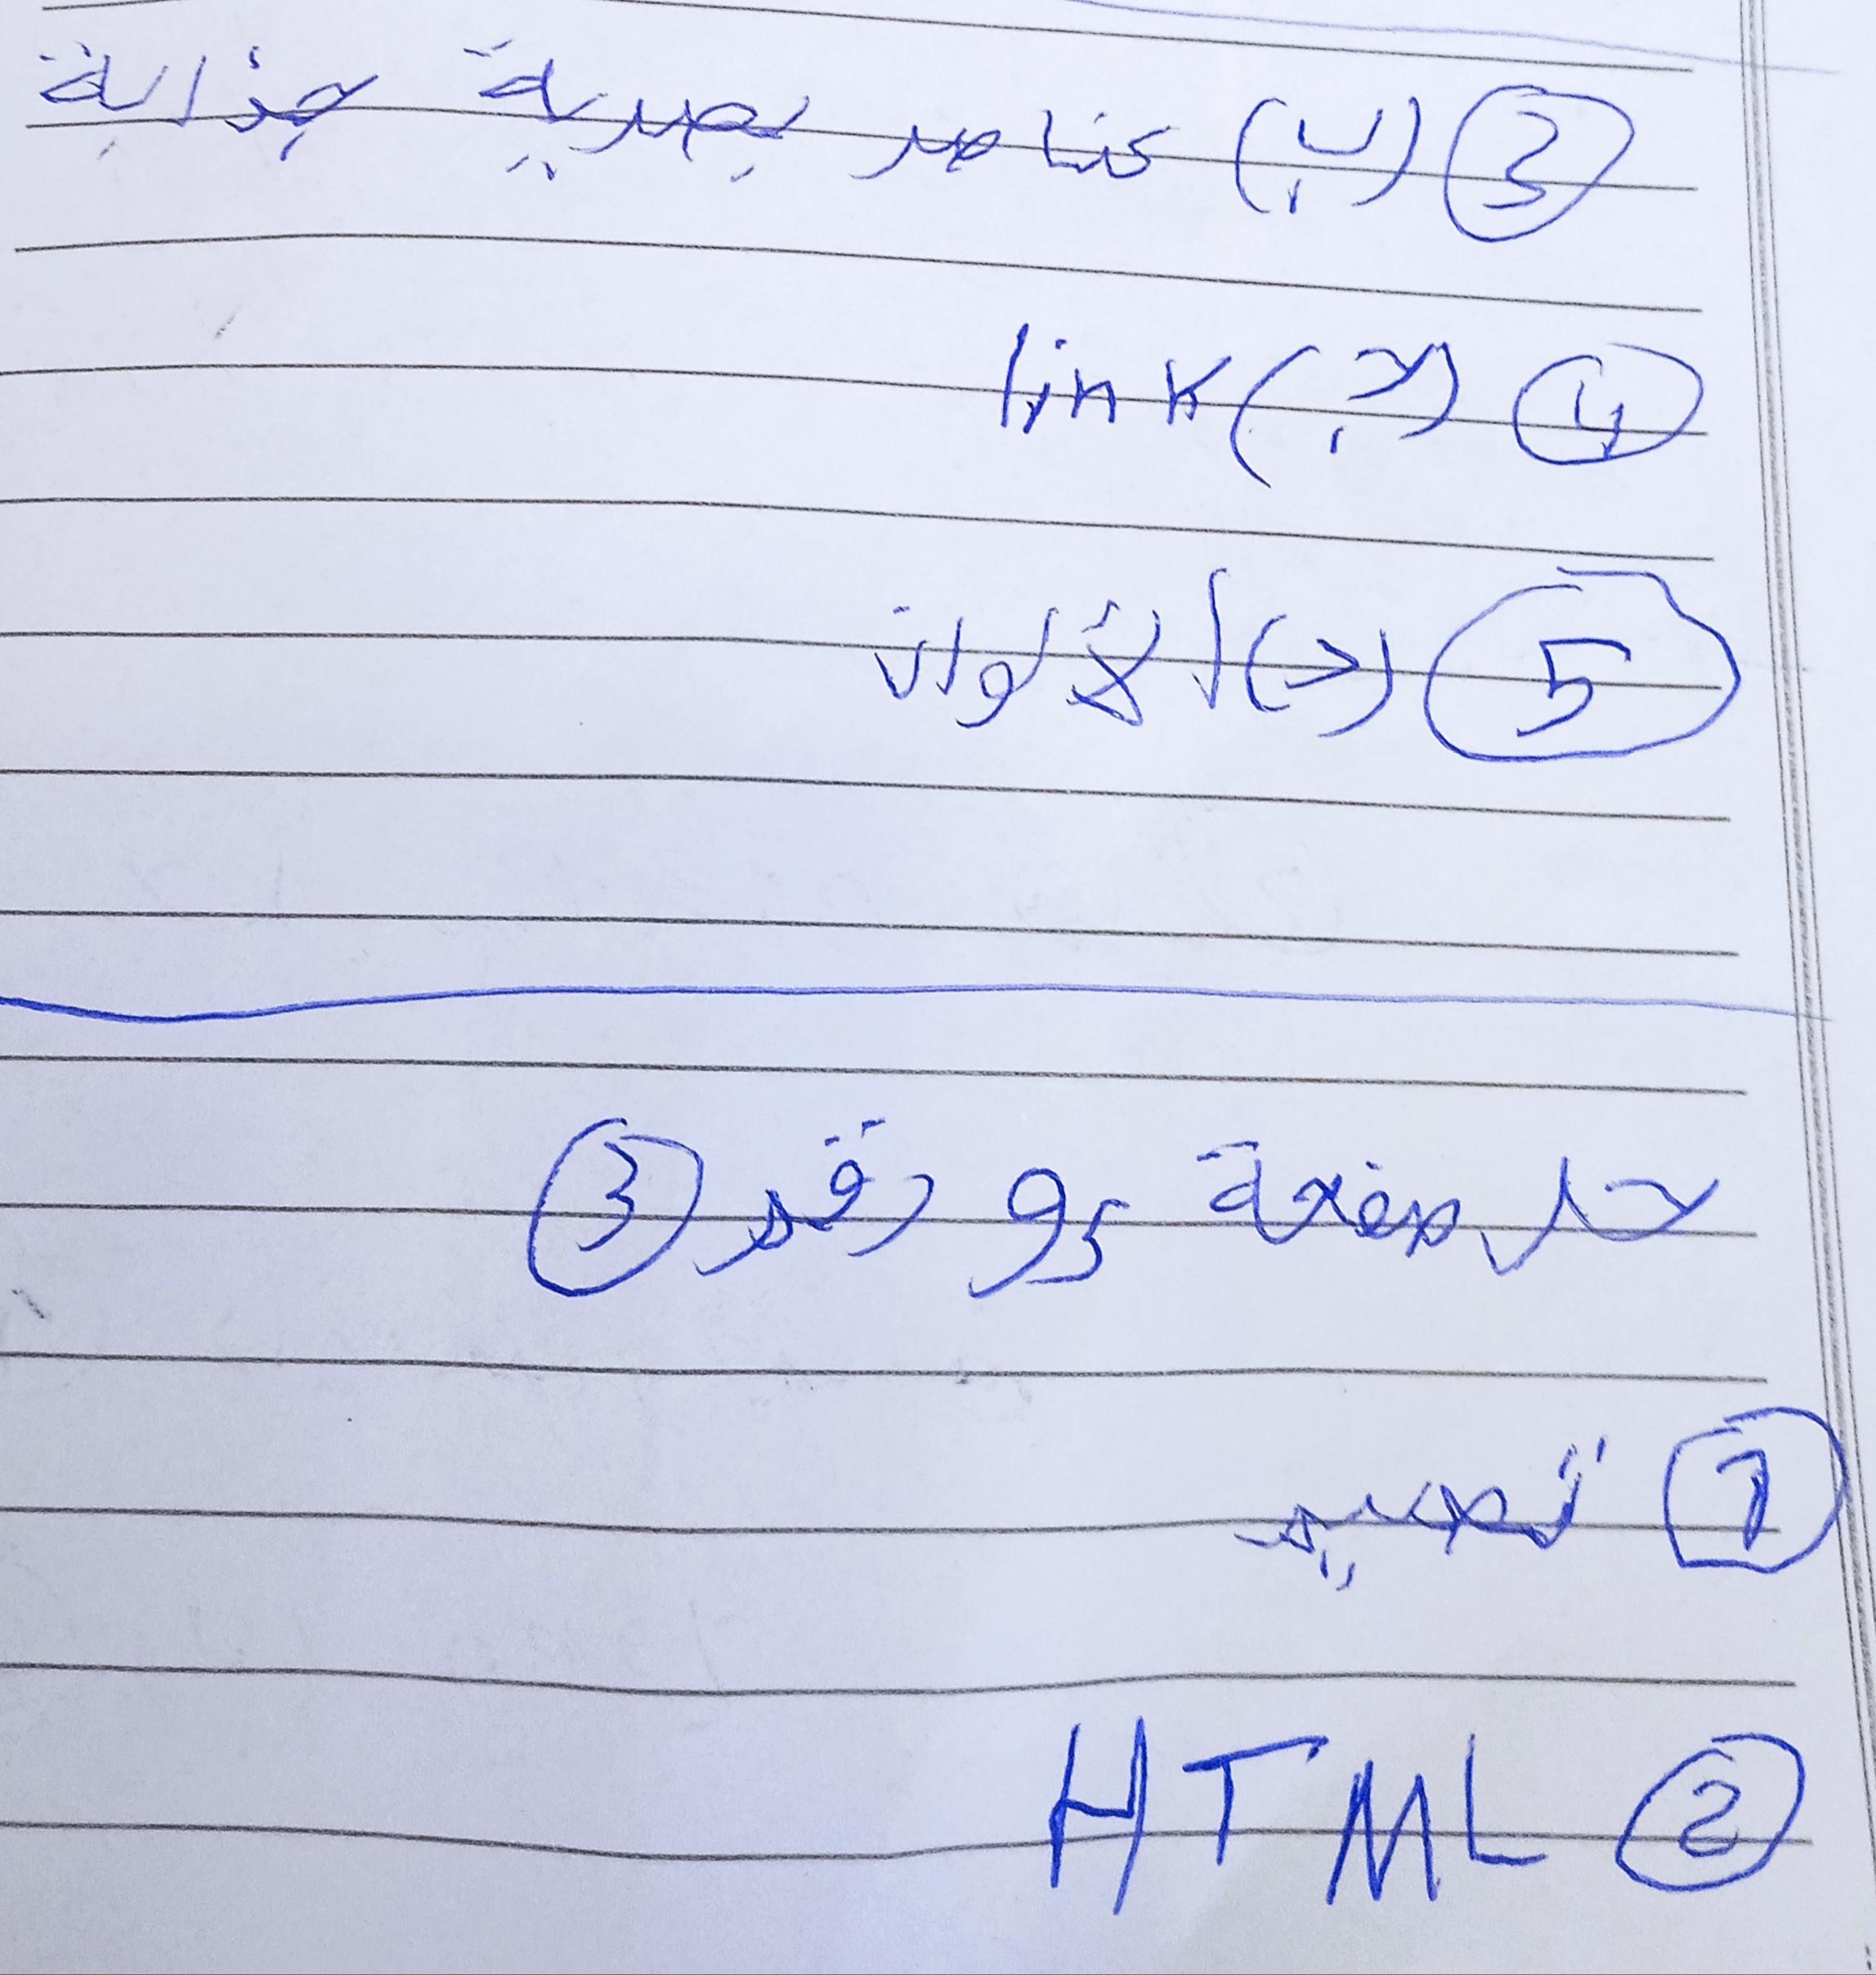 3 (ب) عناصر بصرية جذابة
4 (ج) link
5 (د) الألوان
حل صفحة 95 رقم 3
1 تصميم
2 HTML